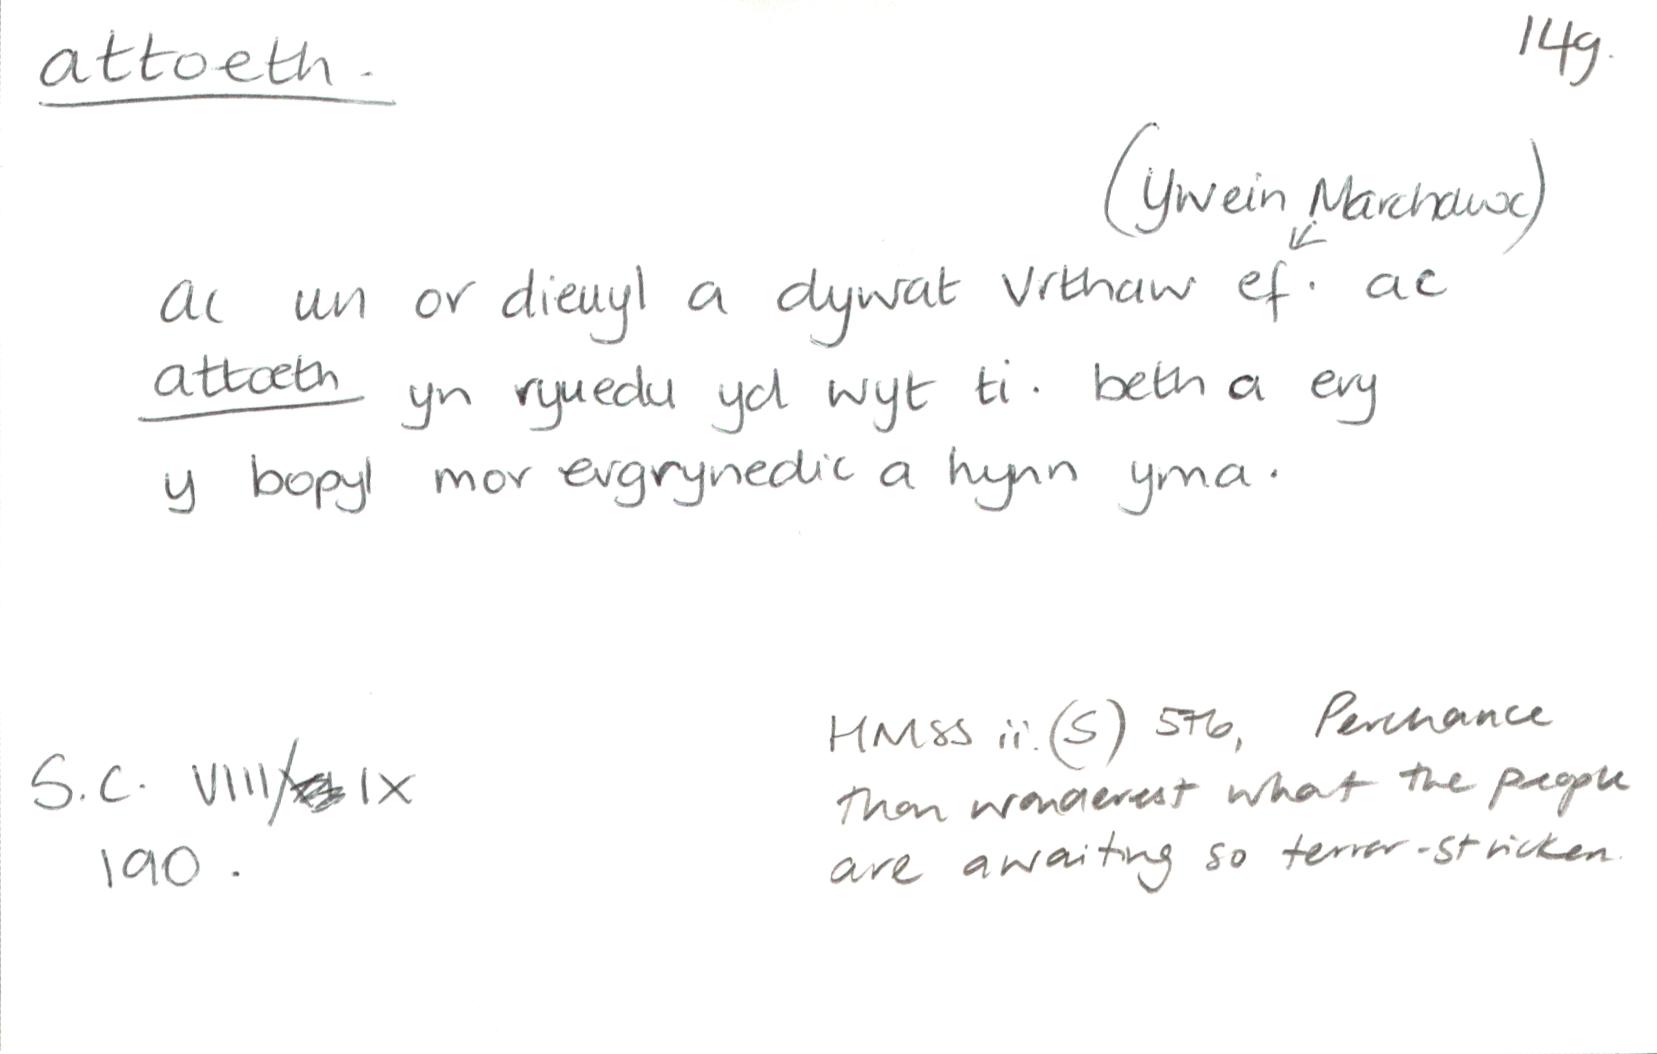 attoeth.
14g.
(Ywein Marchawc)
ac un or dieuyl a dywat vrthaw ef. ac
attoeth yn ryuedu yd wyt ti. beth a ery
y bopyl mor ergrynedic a hynn yma.
S.C. VIII/IX
190.
HMSS ii.(S) 576, Perchance
thou wonderest what the people
are awaiting so terror-stricken.